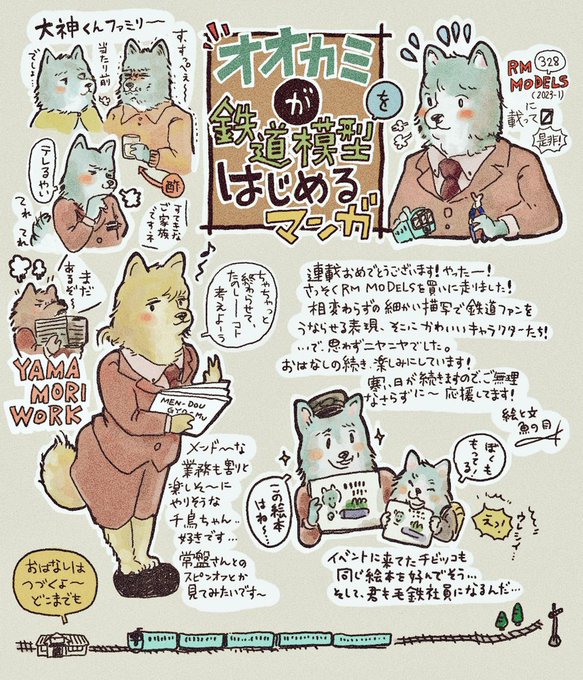 大神くんファミリ〜
すてきぃ〜
当たり前
でしょ
酢
テレるやい
てれ
てれ
すてきな
ご家族
ですネ
オオカミ
が
鉄道模型
を
はじめる
マンガ
RM
MODELS
328
(2023-1)
に
載ってる
是非!
まだ
あるぞ〜
YAMA
MORI
WORK
ちゃちゃっと
終わらせて、
たのしーコト
考えよーう
MEN-DOU
GYO-MU
連載おめでとうございます!やったー!
さっそくRM MODELSを買いに走りました!
相変わらずの細かい描写で鉄道ファンを
うならせる表現、そこにかわいいキャラクターたち!
…で、思わずニヤニヤでした。
おはなしの続き、楽しみにしています!
寒い日が続きますので、ご無理
なさらずに〜 応援してます!
絵と文
魚の目
メンドーな
業務も割と
楽しそ〜に
やりそうな
千鳥ちゃん…
好きです…
常盤さんとの
スピンオフとか
見てみたいです〜
この絵本
はね〜
ぼくも
もってる!
えっ!
ウレシイ…
イベントに来てたチビッコも
同じ絵本を好んでそう…
そして、君も毛鉄社員になるんだ…
おはなしは
つづくよ〜
どこまでも